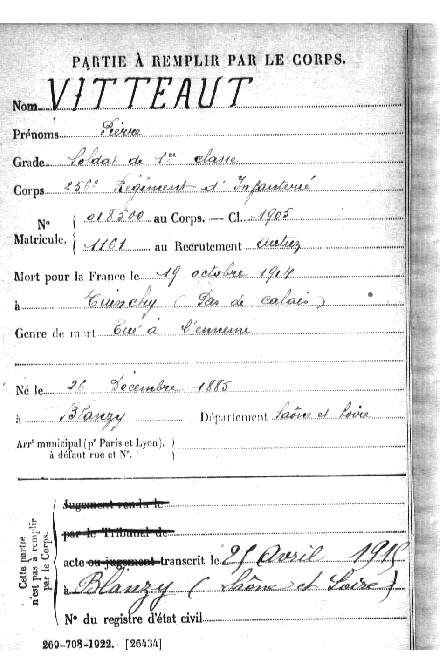 PARTIE À REMPLIR PAR LE CORPS.
Nom VITTEAUT
Prénoms Pierre
Grade Soldat de 1re classe
Corps 256e Régiment d'Infanterie
No Matricule. 018500 au Corps. — Cl. 1905
1101 au Recrutement
Mort pour la France le 19 octobre 1914
à Cuinchy (Pas de Calais)
Genre de mort Tué à l'ennemi
Né le 26 Décembre 1885
à Blanzy Département Saône et Loire
Arrt municipal (pr Paris et Lyon),
à défaut rue et No.
Cette partie n'est pas à remplir par le Corps.
Jugement rendu le
par le Tribunal de
acte ou jugement transcrit le 25 Avril 1915
à Blanzy (Saône et Loire)
No du registre d'état civil
269-708-1922. [26434]